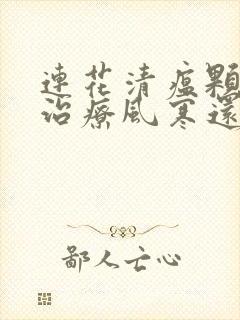 連花清瘟顆
治療風寒還
鄙人亡心